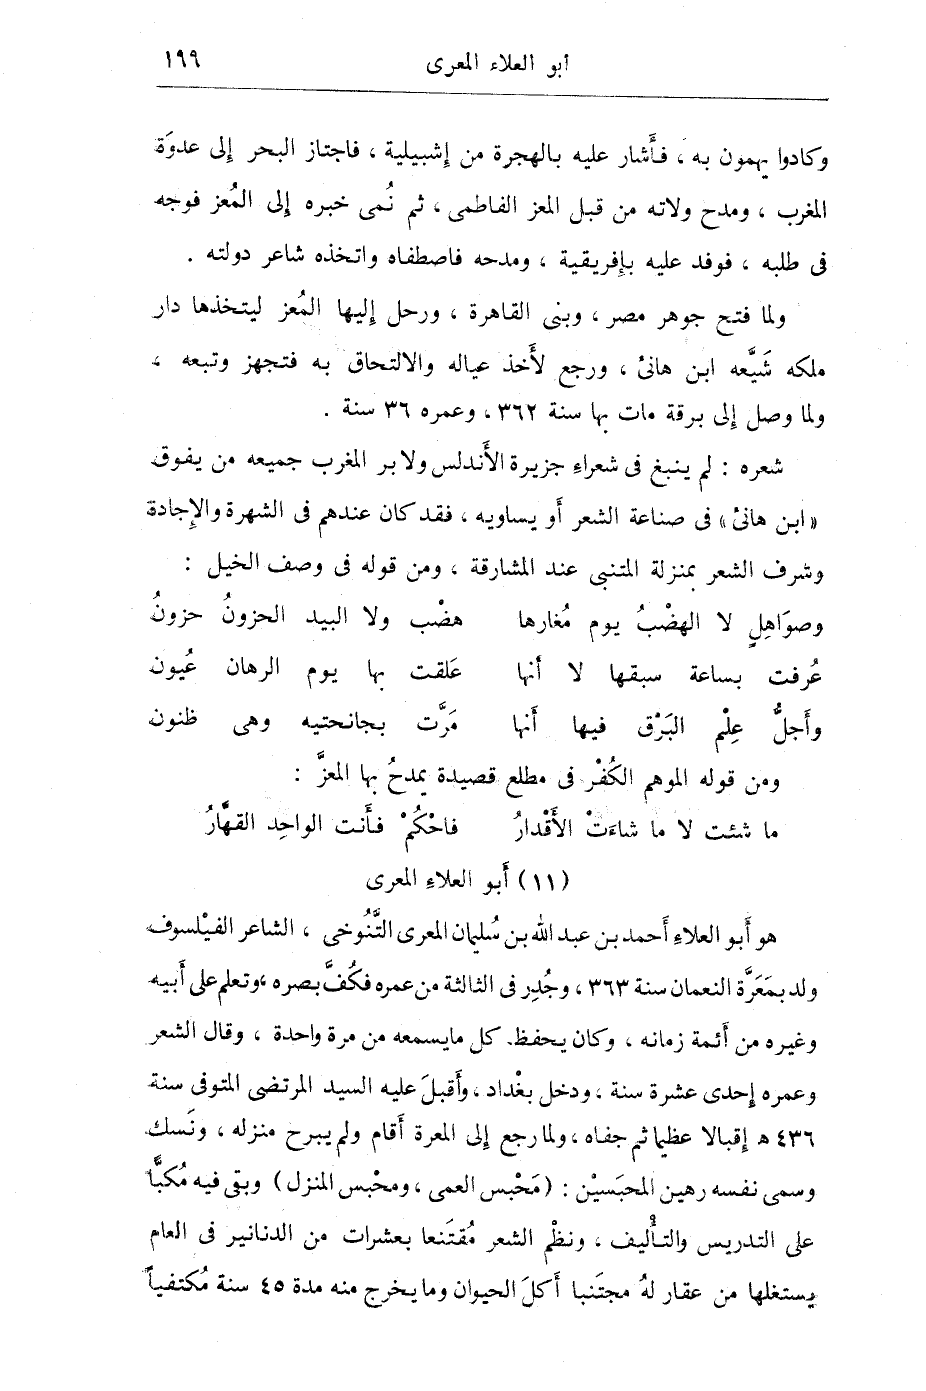 أبو العلاء المعرى ١٩٩
وكادوا يهمون به ، فأَشار عليه بالهجرة من إشبيلية ، فاجتاز البحر إلى عدوَة
المغرب ، ومدح ولاته من قبل المعز الفاطمى ، ثم نُمى خبره إلى المُعز فوجه
فى طلبه ، فوفد عليه بإفريقية ، ومدحه فاصطفاه واتخذه شاعر دولته .
ولما فتح جوهر مصر ، وبنى القاهرة ، ورحل إليها المُعز ليتخذها دار
ملكه شَيَّعه ابن هانئ ، ورجع لأَخذ عياله والالتحاق به فتجهز وتبعه ،
ولما وصل إلى برقة مات بها سنة ٣٦٢ ، وعمره ٣٦ سنة .
شعره : لم ينبغ فى شعراءِ جزيرة الأَندلس ولا بر المغرب جميعه من يفوق
« ابن هانئ » فى صناعة الشعر أَو يساويه ، فقد كان عندهم فى الشهرة والإِجادة
وشرف الشعر بمنزلة المتنبى عند المشارقة ، ومن قوله فى وصف الخيل :
وصوَاهِلٍ لا الهضْبُ يوم مُغارها هضْب ولا البيد الحزونُ حزونُ
عُرفت بساعة سبقها لا أنها عَلقت بها يوم الرهان عُيون
وأَجلُّ عِلْم البَرْق فيها أَنها مَرَّت بجانحتيه وهى ظنون
ومن قوله الموهم الكُفْر فى مطلع قصيدة يمدحُ بها المعزَّ :
ما شئت لا ما شاءَتْ الأَقْدارُ فاحْكُمْ فأَنت الواحِد القهَّارُ
(١١) أَبو العلاءِ المعرى
هو أَبو العلاءِ أَحمد بن عبد الله بن سُليمان المعرى التَّنُوخى ، الشاعر الفيْلسوف
ولد بمَعَرَّة النعمان سنة ٣٦٣ ، وجُدِر فى الثالثة من عمره فكُفَّ بصره ، وتعلم على أَبيه
وغيره من أَئمة زمانه ، وكان يحفظ كل مايسمعه من مرة واحدة ، وقال الشعر
وعمره إحدى عشرة سنة ، ودخل بغْداد ، وأَقبلَ عليه السيد المرتضى المتوفى سنة
٤٣٦ هـ إقبالا عظيما ثم جفاه ، ولما رجع إلى المعرة أَقام ولم يبرح منزله ، ونَسك
وسمى نفسه رهين المحبَسيْن : (مَحْبس العمى ، ومحْبس المنزل) وبقى فيه مُكبًّا
على التدريس والتأْليف ، ونظْم الشعر مُقتَنعا بعشرات من الدنانير فى العام
يستغلها من عقار لهُ مجتَنبا أَكلَ الحيوان وما يخرج منه مدة ٤٥ سنة مُكتفياً